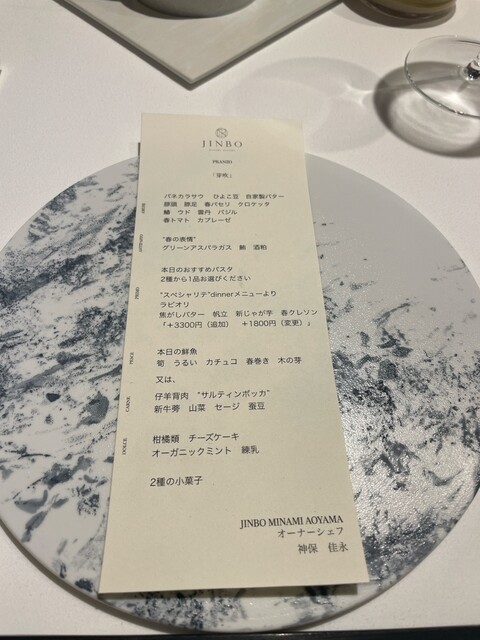 JINBO
PRANZO
「芽吹」
パネカラサウ ひよこ豆 自家製バター
豚頭 豚足 春パセリ クロケッタ
鰆 ウド 雲丹 バジル
春トマト カプレーゼ
"春の表情"
グリーンアスパラガス 鮪 酒粕
本日のおすすめパスタ
2種から1品お選びください
"スペシャリテ"dinnerメニューより
ラビオリ
焦がしバター 帆立 新じゃが芋 春クレソン
「+3300円（追加） +1800円（変更）」
PESCE
本日の鮮魚
筍 うるい カチュコ 春巻き 木の芽
又は、
CARNE
仔羊背肉 "サルティンボッカ"
新牛蒡 山菜 セージ 蚕豆
DOLCE
柑橘類 チーズケーキ
オーガニックミント 練乳
2種の小菓子
JINBO MINAMI AOYAMA
オーナーシェフ
神保 佳永